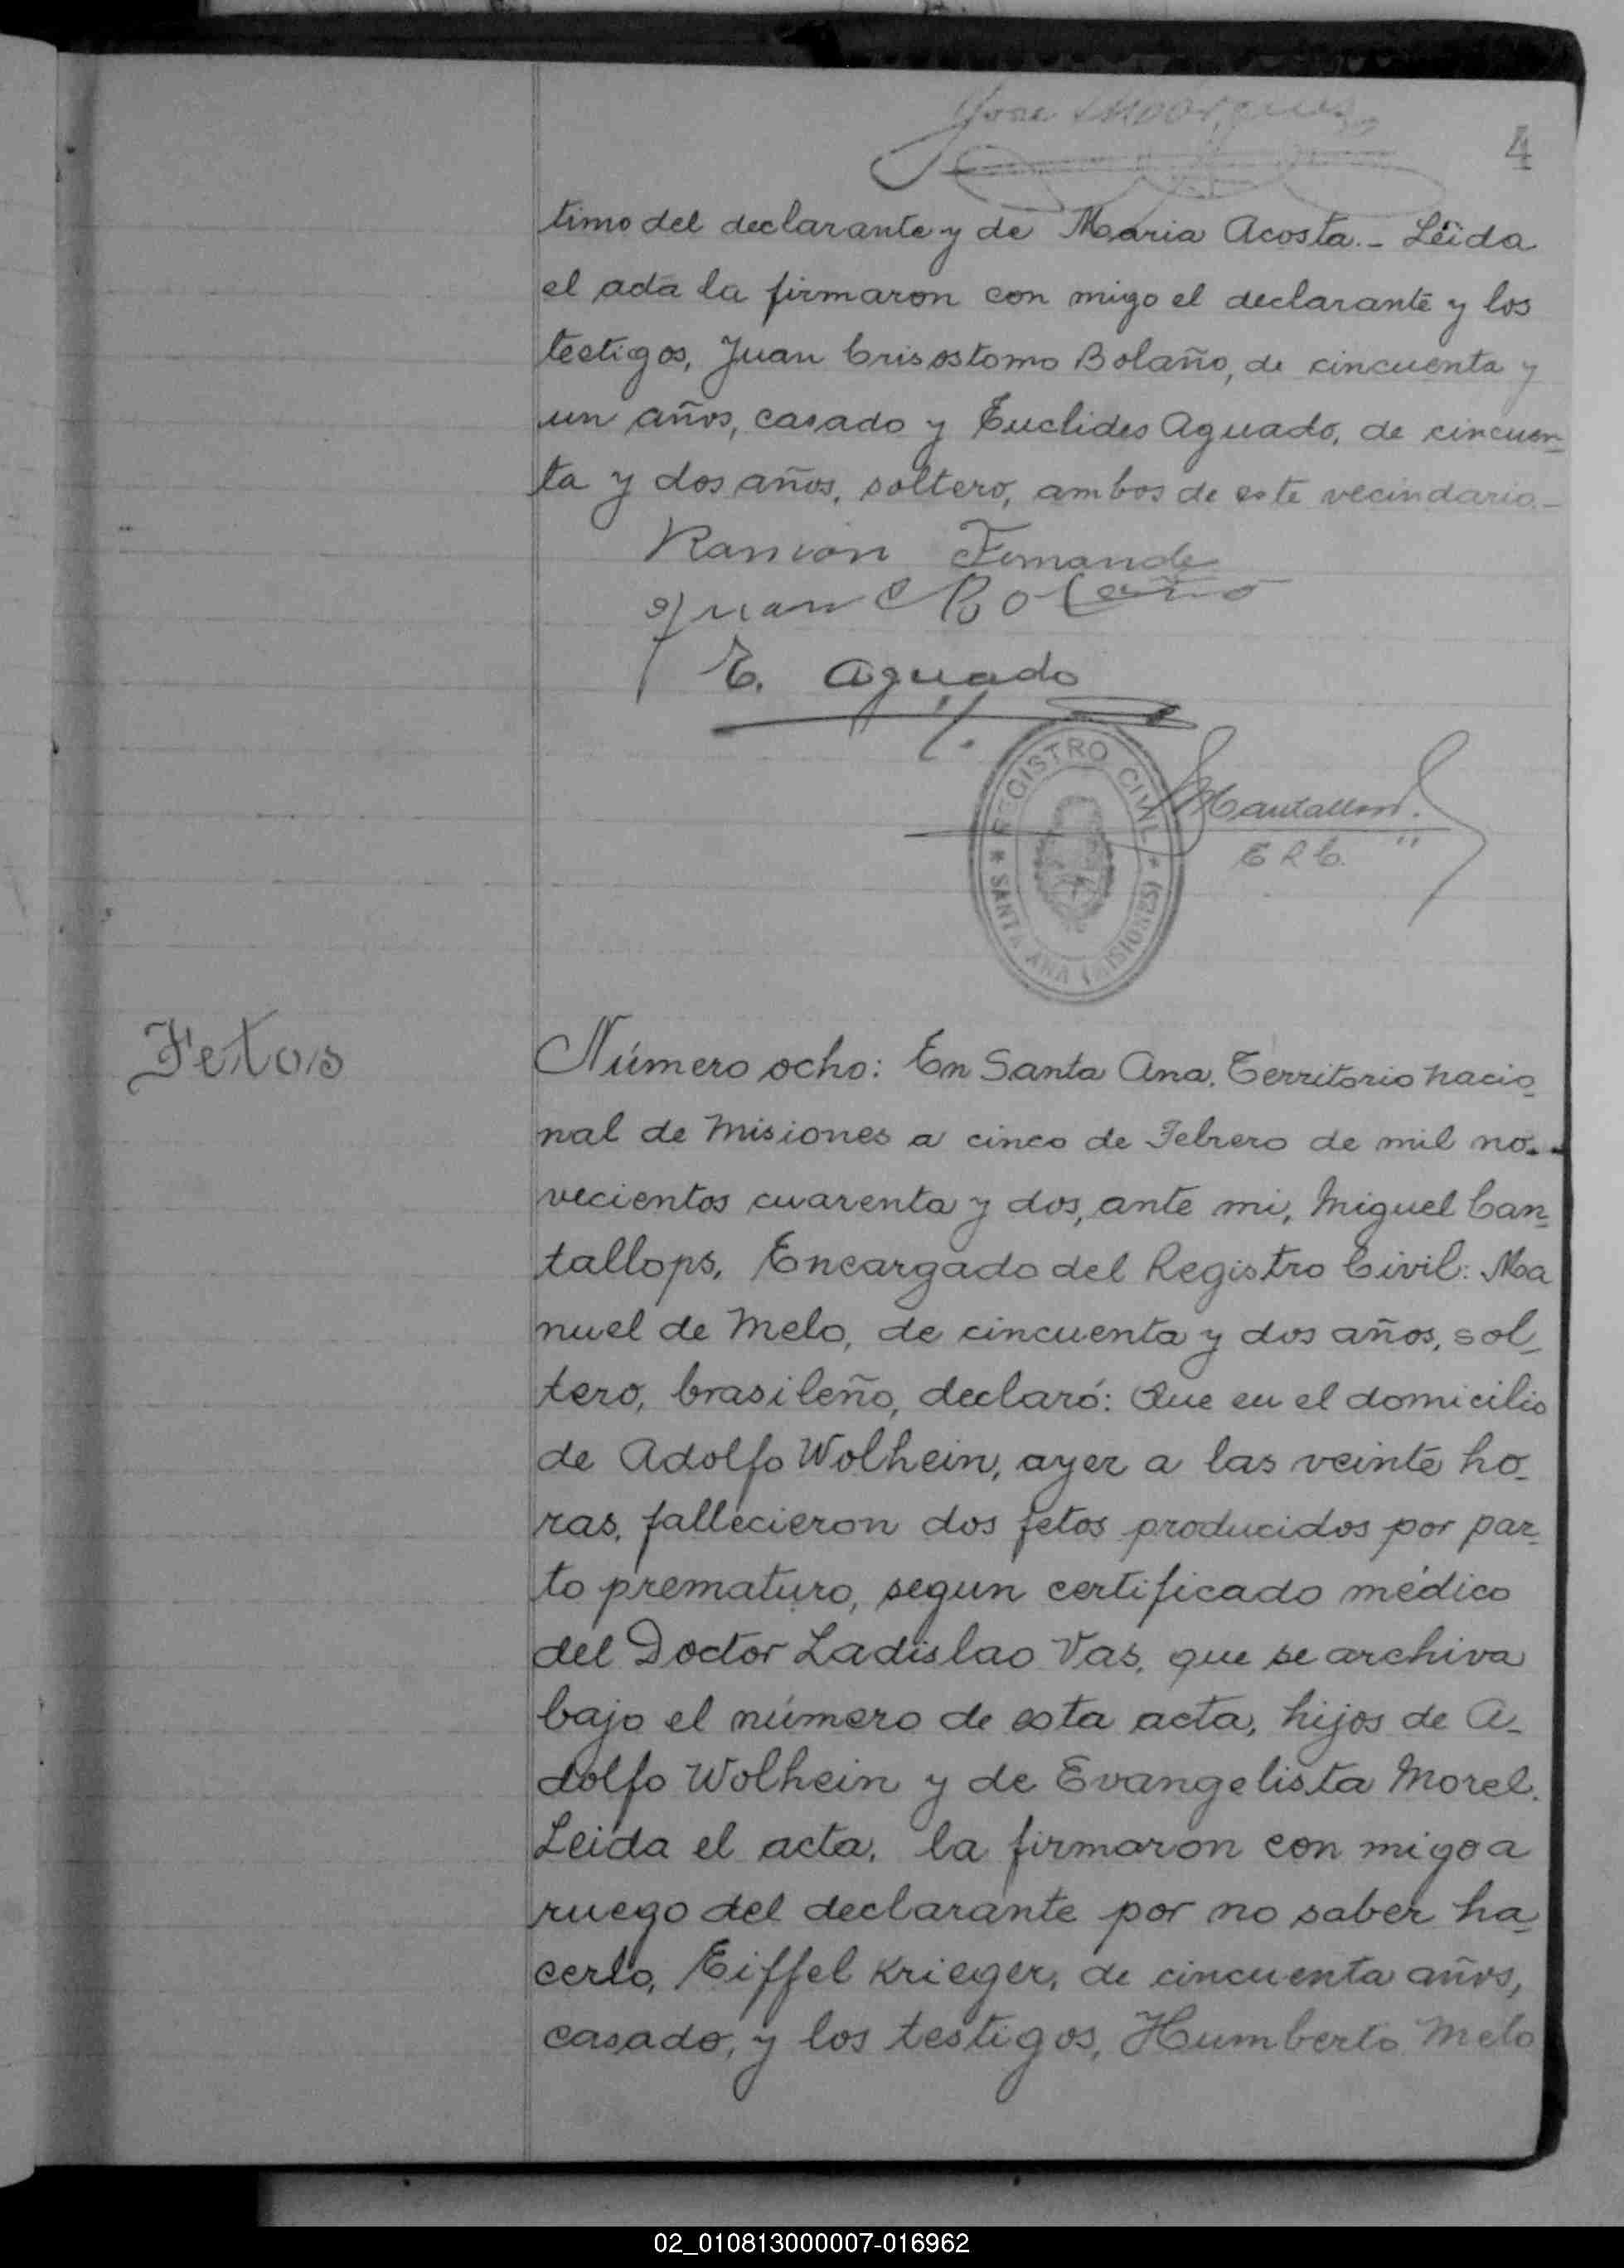 4
timo del declarante y de Maria Acosta.- Leida
el acta la firmaron con migo el declarante y los
testigos, Juan Crisostomo Bolaño, de cincuenta y
un años, casado y Euclides Aguado, de cincuen-
ta y dos años, soltero, ambos de este vecindario.-
Ramon Fernande
Juan C Bolaño
E. Aguado
REGISTRO CIVIL
* SANTA ANA (MISIONES) *
MCantallops
E R C.
Fetos
Número ocho: En Santa Ana, Territorio nacio-
nal de Misiones a cinco de Febrero de mil no-
vecientos cuarenta y dos, ante mi, Miguel Can-
tallops, Encargado del Registro Civil: Ma
nuel de Melo, de cincuenta y dos años, sol-
tero, brasileño, declaró: Que en el domicilio
de Adolfo Wolhein, ayer a las veinte ho-
ras, fallecieron dos fetos producidos por par-
to prematuro, segun certificado médico
del Doctor Ladislao Vas, que se archiva
bajo el número de esta acta, hijos de A-
dolfo Wolhein y de Evangelista Morel.
Leida el acta, la firmaron con migo a
ruego del declarante por no saber ha-
cerlo, Eiffel Krieger, de cincuenta años,
casado, y los testigos, Humberto Melo
02_010813000007-016962